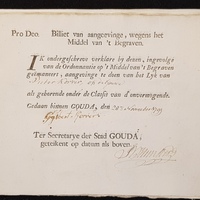 Pro Deo. Billiet van aangevinge, wegens het
Middel van 't Begraven.
IK ondergeschreve verklare by dezen, ingevolge
van de Ordonnantie op 't Middel van 't Begraven
geëmaneert, aangevinge te doen van het Lyk van
als gehorende onder de Classis van d'onvermogende.
Gedaan binnen GOUDA, den
Ter Secretarye der Stad GOUDA,
getekent op datum als boven.